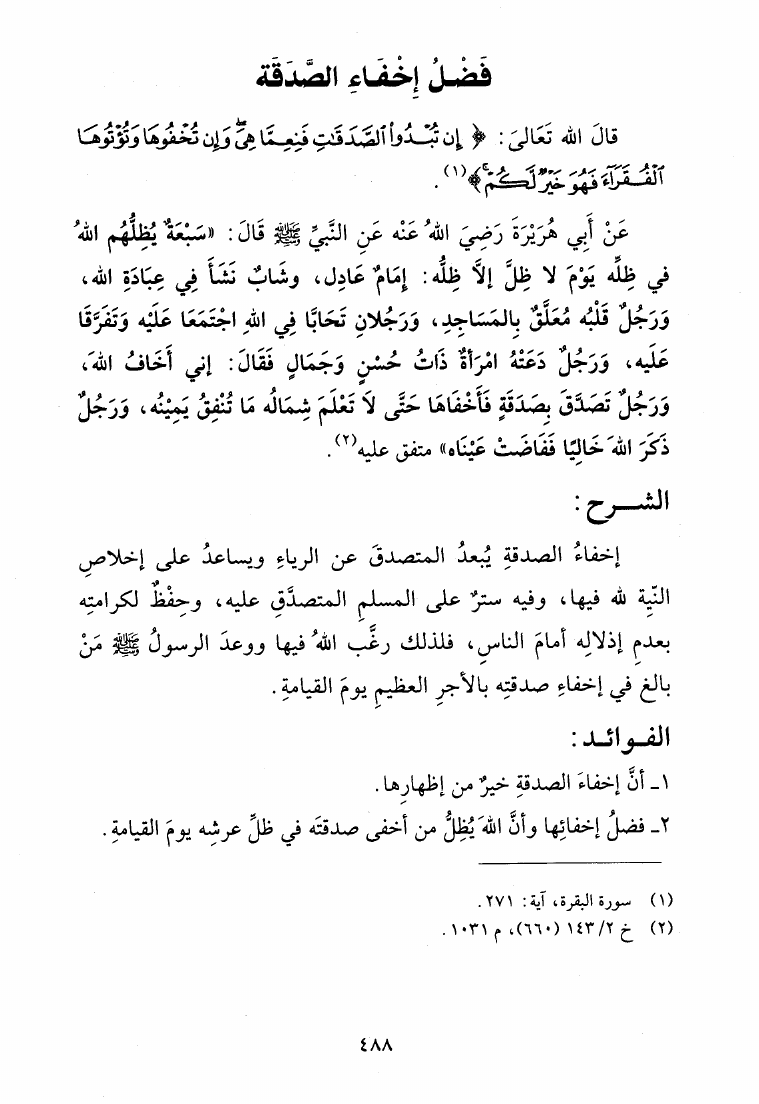 فَضْلُ إِخْفَاءِ الصَّدَقَة
قالَ الله تَعَالىَ: ﴿ إِن تُبْدُواْ ٱلصَّدَقَٰتِ فَنِعِمَّا هِىَۖ وَإِن تُخْفُوهَا وَتُؤْتُوهَا
ٱلْفُقَرَآءَ فَهُوَ خَيْرٌ لَّكُمْۚ﴾(١).
عَنْ أَبِي هُرَيْرَةَ رَضِيَ اللهُ عَنْه عَنِ النَّبِيِّ ﷺ قَالَ: «سَبْعَةٌ يُظِلُّهُم اللهُ
في ظِلِّه يَوْمَ لا ظِلَّ إلاَّ ظِلُّه: إِمَامٌ عَادِل، وشَابٌ نَشَأَ فِي عِبَادَةِ الله،
وَرَجُلٌ قَلْبُه مُعَلَّقٌ بِالمَسَاجِدِ، وَرَجُلانِ تَحَابَّا فِي اللهِ اجْتَمَعَا عَلَيْه وَتَفَرَّقَا
عَلَيه، وَرَجُلٌ دَعَتْهُ امْرَأةٌ ذَاتُ حُسْنٍ وَجَمَالٍ فَقَالَ: إني أَخَافُ اللهَ،
وَرَجُلٌ تَصَدَّقَ بِصَدَقَةٍ فَأَخْفَاهَا حَتَّى لاَ تَعْلَمَ شِمَالُه مَا تُنْفِقُ يَمِيْنُه، وَرَجُلٌ
ذَكَرَ اللهَ خَالِيًا فَفَاضَتْ عَيْنَاه» متفق عليه(٢).
الشـــرح:
إخفاءُ الصدقةِ يُبعدُ المتصدقَ عن الرياءِ ويساعدُ على إخلاصِ
النّيِة لله فيها، وفيه سترٌ على المسلمِ المتصدَّقِ عليه، وحِفْظٌ لكرامتِه
بعدمِ إذلالِه أمامَ الناسِ، فلذلك رغَّب اللهُ فيها ووعدَ الرسولُ ﷺ مَنْ
بالغ في إخفاءِ صدقتِه بالأجرِ العظيمِ يومَ القيامةِ.
الفـوائـد:
١ـ أنَّ إخفاءَ الصدقةِ خيرٌ من إظهارِها.
٢ـ فضلُ إخفائِها وأنَّ اللهَ يُظِلُّ من أخفى صدقتَه في ظلِّ عرشِه يومَ القيامةِ.
(١) سورة البقرة، آية: ٢٧١.
(٢) خ ١٤٣/٢ (٦٦٠)، م ١٠٣١.
٤٨٨